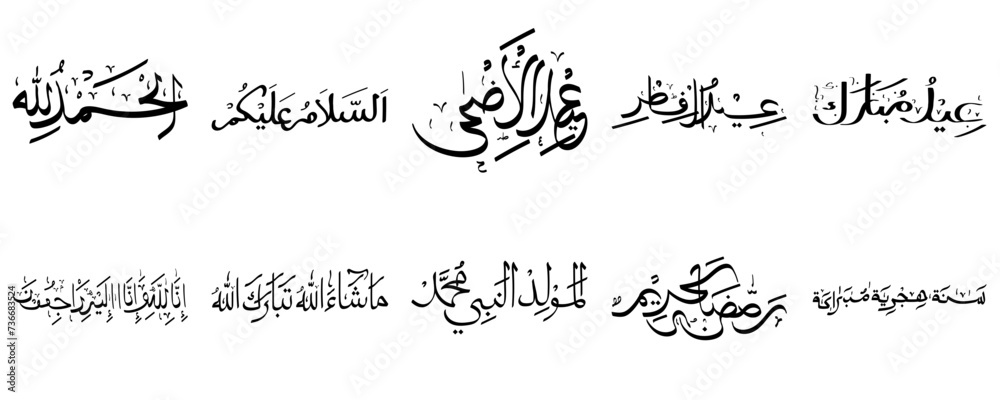 عيد مبارك
عيد الفطر
عيد الأضحى
السلام عليكم
الحمد لله
سنة هجرية مباركة
رمضان الكريم
المولد النبي محمد
ما شاء الله تبارك الله
إنا لله وإنا إليه راجعون
Adobe Stock | #736683524